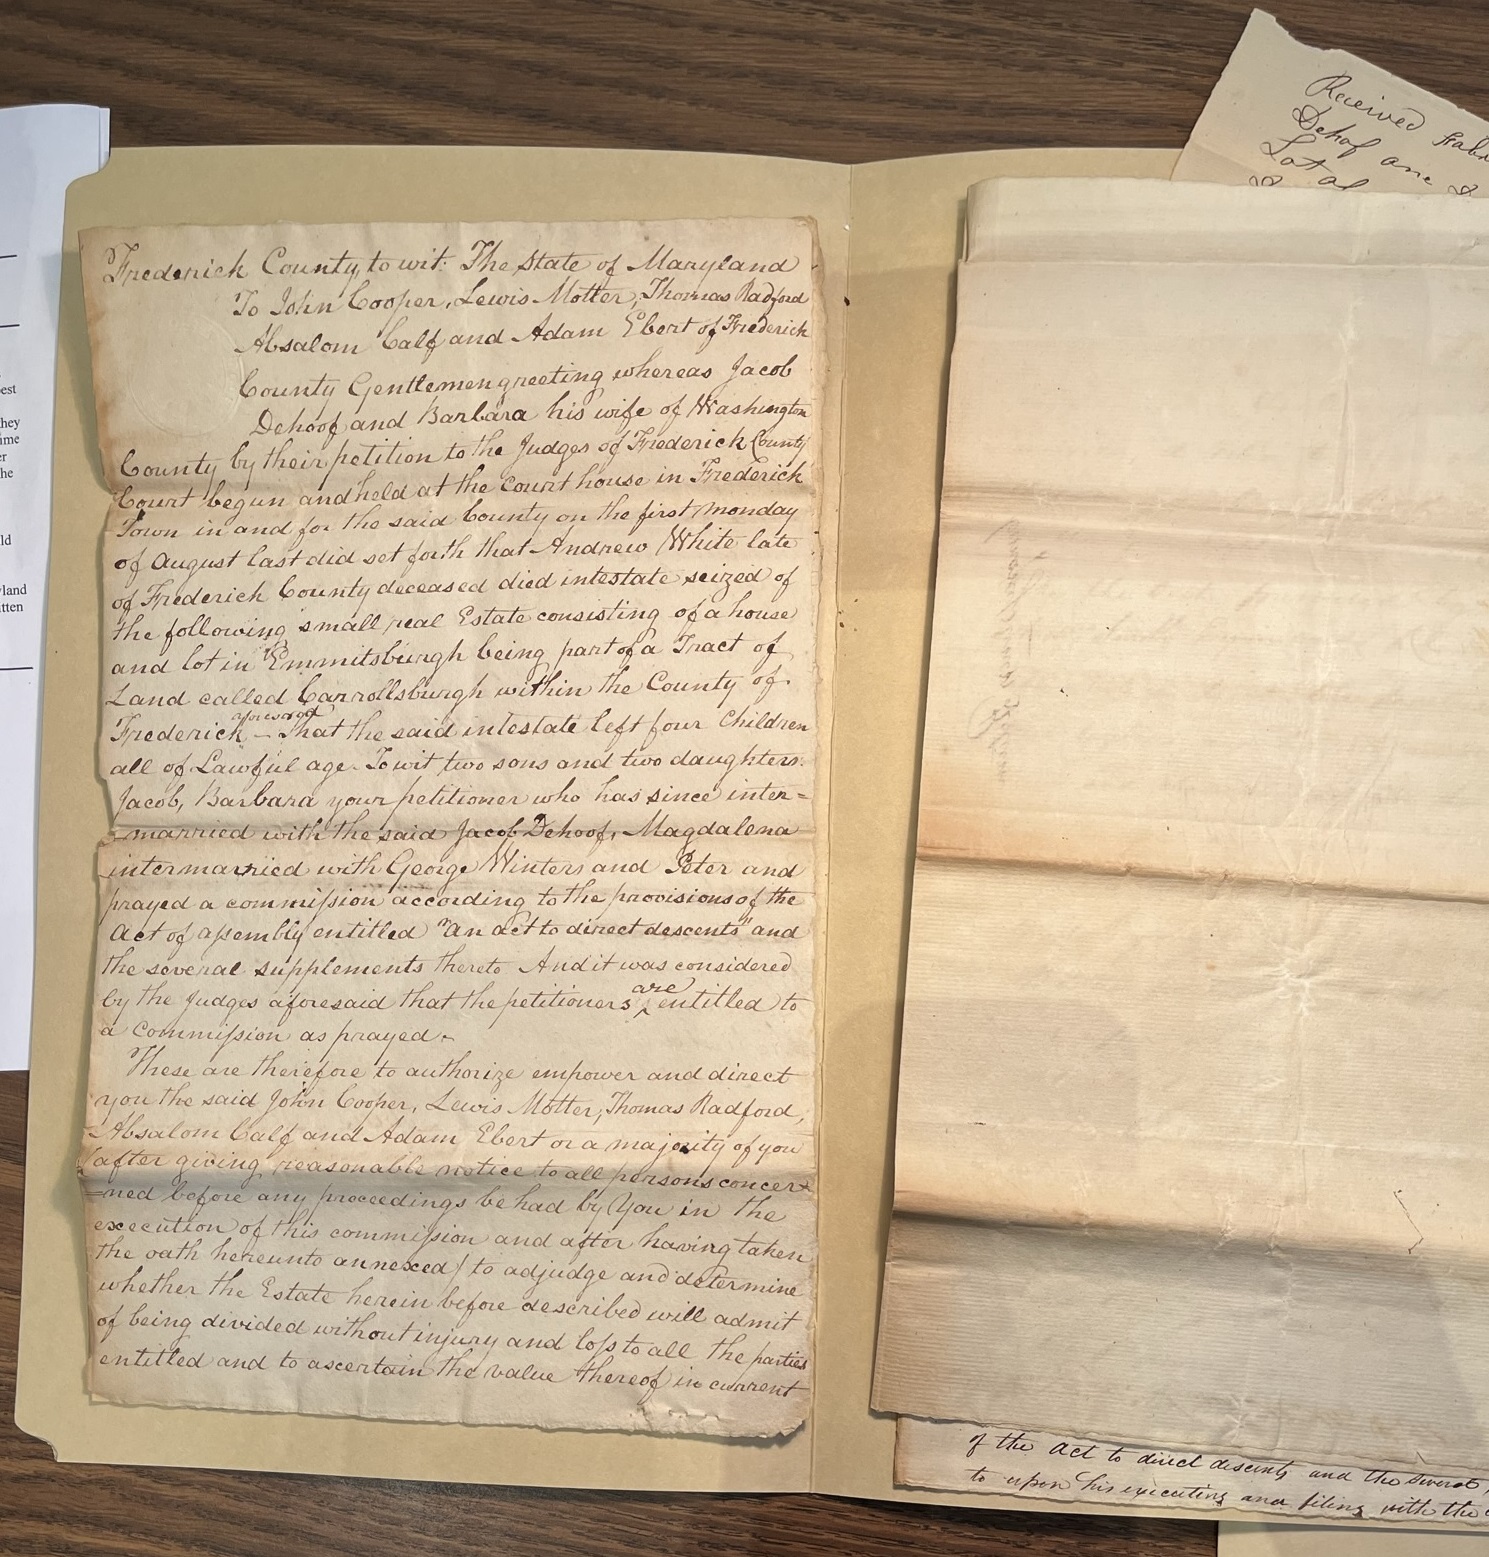 Frederick County, to wit: The State of Maryland
To John Cooper, Lewis Motter, Thomas Radford
Absalom Calf and Adam Ebert of Frederick
County Gentlemen greeting whereas Jacob
Dehoof and Barbara his wife of Washington
County by their petition to the Judges of Frederick County
Court begun and held at the court house in Frederick
Town in and for the said County on the first Monday
of August last did set forth that Andrew White late
of Frederick County deceased died intestate seized of
the following small real Estate consisting of a house
and lot in Emmitsburgh being part of a Tract of
Land called Carrollsburgh within the County of
Frederick - That the said intestate left four children
all of Lawful age - To wit two sons and two daughters.
Jacob, Barbara your petitioner who has since inter=
=married with the said Jacob Dehoof, Magdalena
intermarried with George Winters and Peter and
prayed a commission according to the provisions of the
Act of assembly entitled "an act to direct descents" and
the several supplements thereto And it was considered
by the Judges aforesaid that the petitioners are entitled to
a commission as prayed.
These are therefore to authorize empower and direct
you the said John Cooper, Lewis Motter, Thomas Radford,
Absalom Calf and Adam Ebert or a majority of you
(after giving reasonable notice to all persons concer=
=ned before any proceedings be had by You in the
execution of this commission and after having taken
the oath hereunto annexed) to adjudge and determine
whether the Estate herein before described will admit
of being divided without injury and loss to all the parties
entitled and to ascertain the value thereof in current
Received
Dehof
Lot
of the Act to direct descents and the
to upon his executing and filing with the
est
hey
ime
er
he
ld
yland
itten